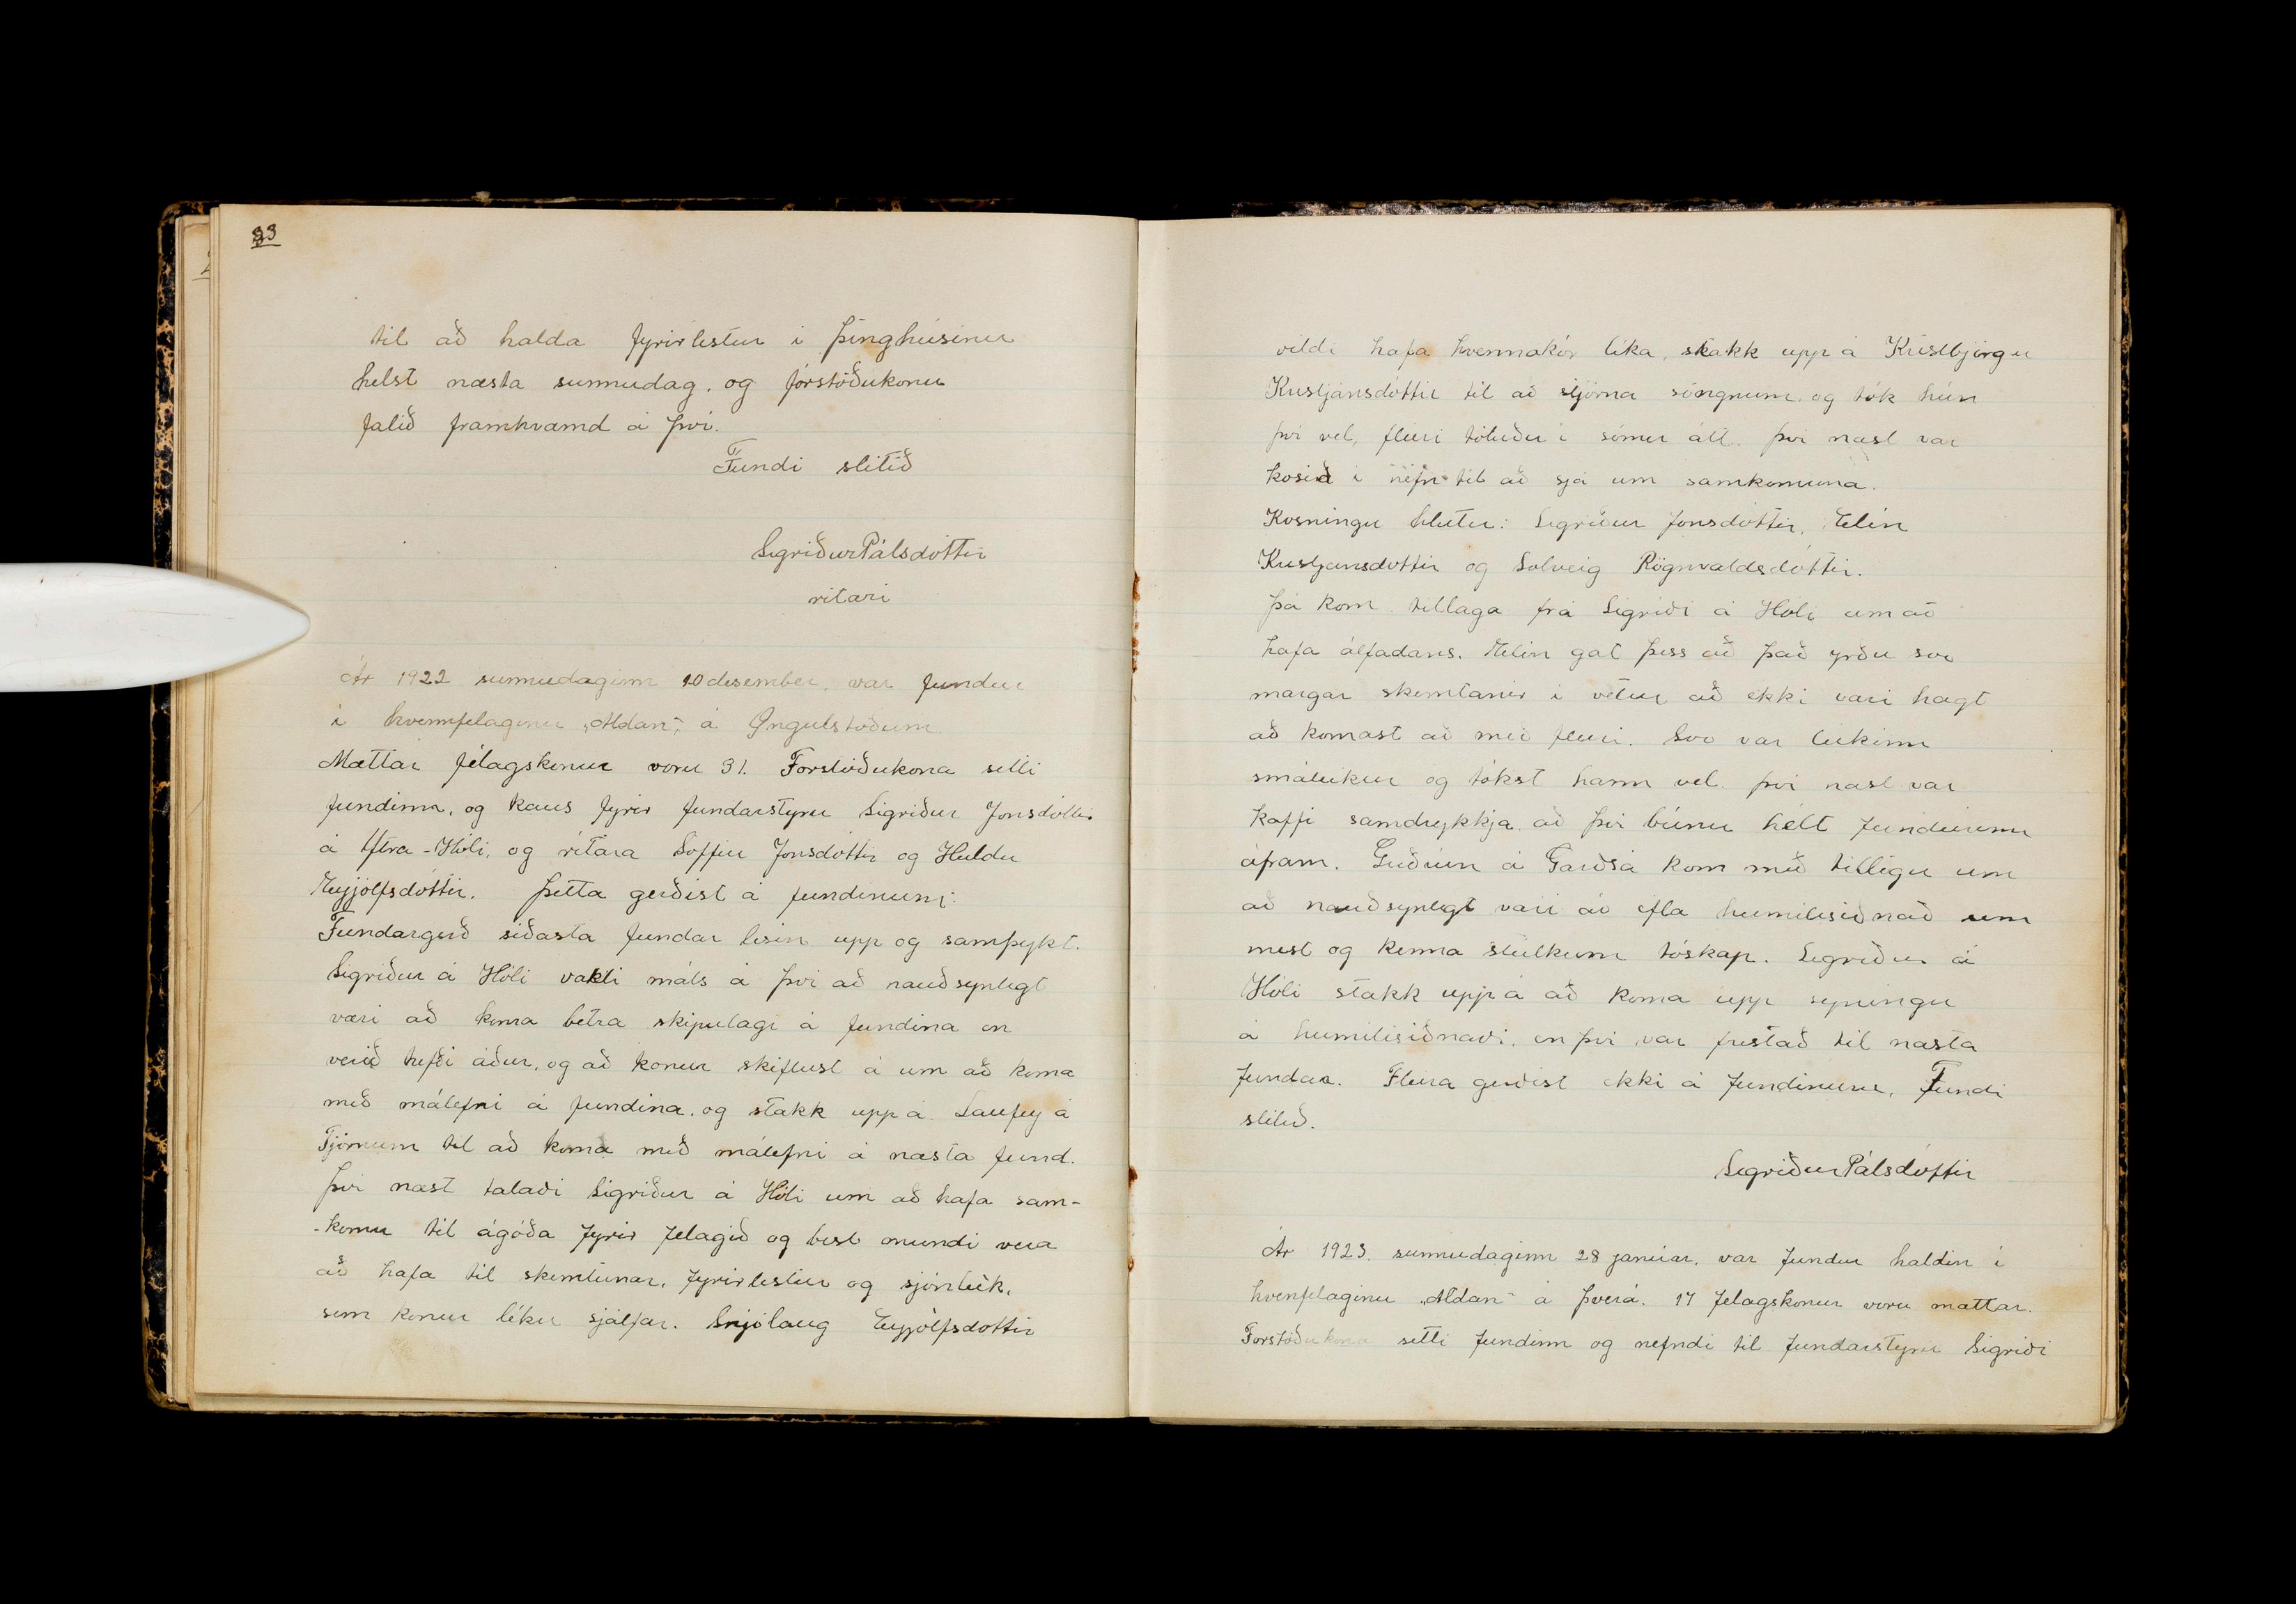 33
til að halda fyrirlestur i þinghúsinu
helst næsta sunnudag, og fórstöðukonu
falið framkvæmd á því.
Fundi slitið
Sigriður Pálsdóttir
ritari
Ár 1922 sunnudaginn 10 desember, var fundur
i kvennfelaginu „Aldan", á Öngulstöðum.
Mættar félagskonur voru 31. Forstöðukona setti
fundinn, og kaus fyrir fundarstyru Sigriður Jonsdóttir
á Ytra-Hóli, og ritara Soffiu Jonsdóttir og Huldu
Eyjólfsdóttir. Þetta gerðist á fundinum:
Fundargerð siðasta fundar lesin upp og samþykt.
Sigriður á Hóli vakti máls á því að nauðsynlegt
væri að koma betra skipulagi á fundina en
verið hefði áður, og að konur skiftust á um að koma
með málefni á fundina, og stakk upp a Laufey á
Tjörnum til að koma með málefni á næsta fund.
Þvi næst talaði Sigriður á Hóli um að hafa sam-
-komu til ágóða fyrir felagið og best mundi vera
að hafa til skemtunar, fyrirlestur og sjónleik,
sem konur léku sjálfar. Snjólaug Eyjólfsdottir
vildi hafa kvennakór lika, stakk upp á Kristbjörgu
Kristjánsdóttir til að stjórna söngnum og tók hún
þvi vel, fleiri töluðu i sömu átt. þvi næst var
kosið i nefn til að sjá um samkomuna.
Kosningu hlutu: Sigriður Jonsdóttir, Elin
Kristjansdottir og Solveig Rögnvaldsdóttir.
Þá kom tillaga frá Sigriði á Hóli um að
hafa álfadans. Elin gat þess að það yrðu svo
margar skemtanir i vetur að ekki væri hægt
að komast að með fleiri. Svo var leikinn
smáleikur og tókst hann vel. þvi næst var
kaffi samdrykkja að þvi búnu hélt fundurinn
áfram. Guðrún á Garðsá kom með tillögu um
að nauðsynlegt væri að efla heimilisiðnað sem
mest og kenna stúlkum tóskap. Sigriður á
Hóli stakk uppá að koma upp syningu
á heimilisiðnaði, en þvi var frestað til næsta
fundar. Fleira gerðist ekki á fundinum, Fundi
slitið.
Sigriður Pálsdóttir
Ár 1923. sunnudaginn 28 janúar, var fundur haldin i
kvenfelaginu „Aldan" á Þverá. 17 felagskonur voru mættar.
Forstöðukona setti fundinn og nefndi til fundarstyru Sigriði